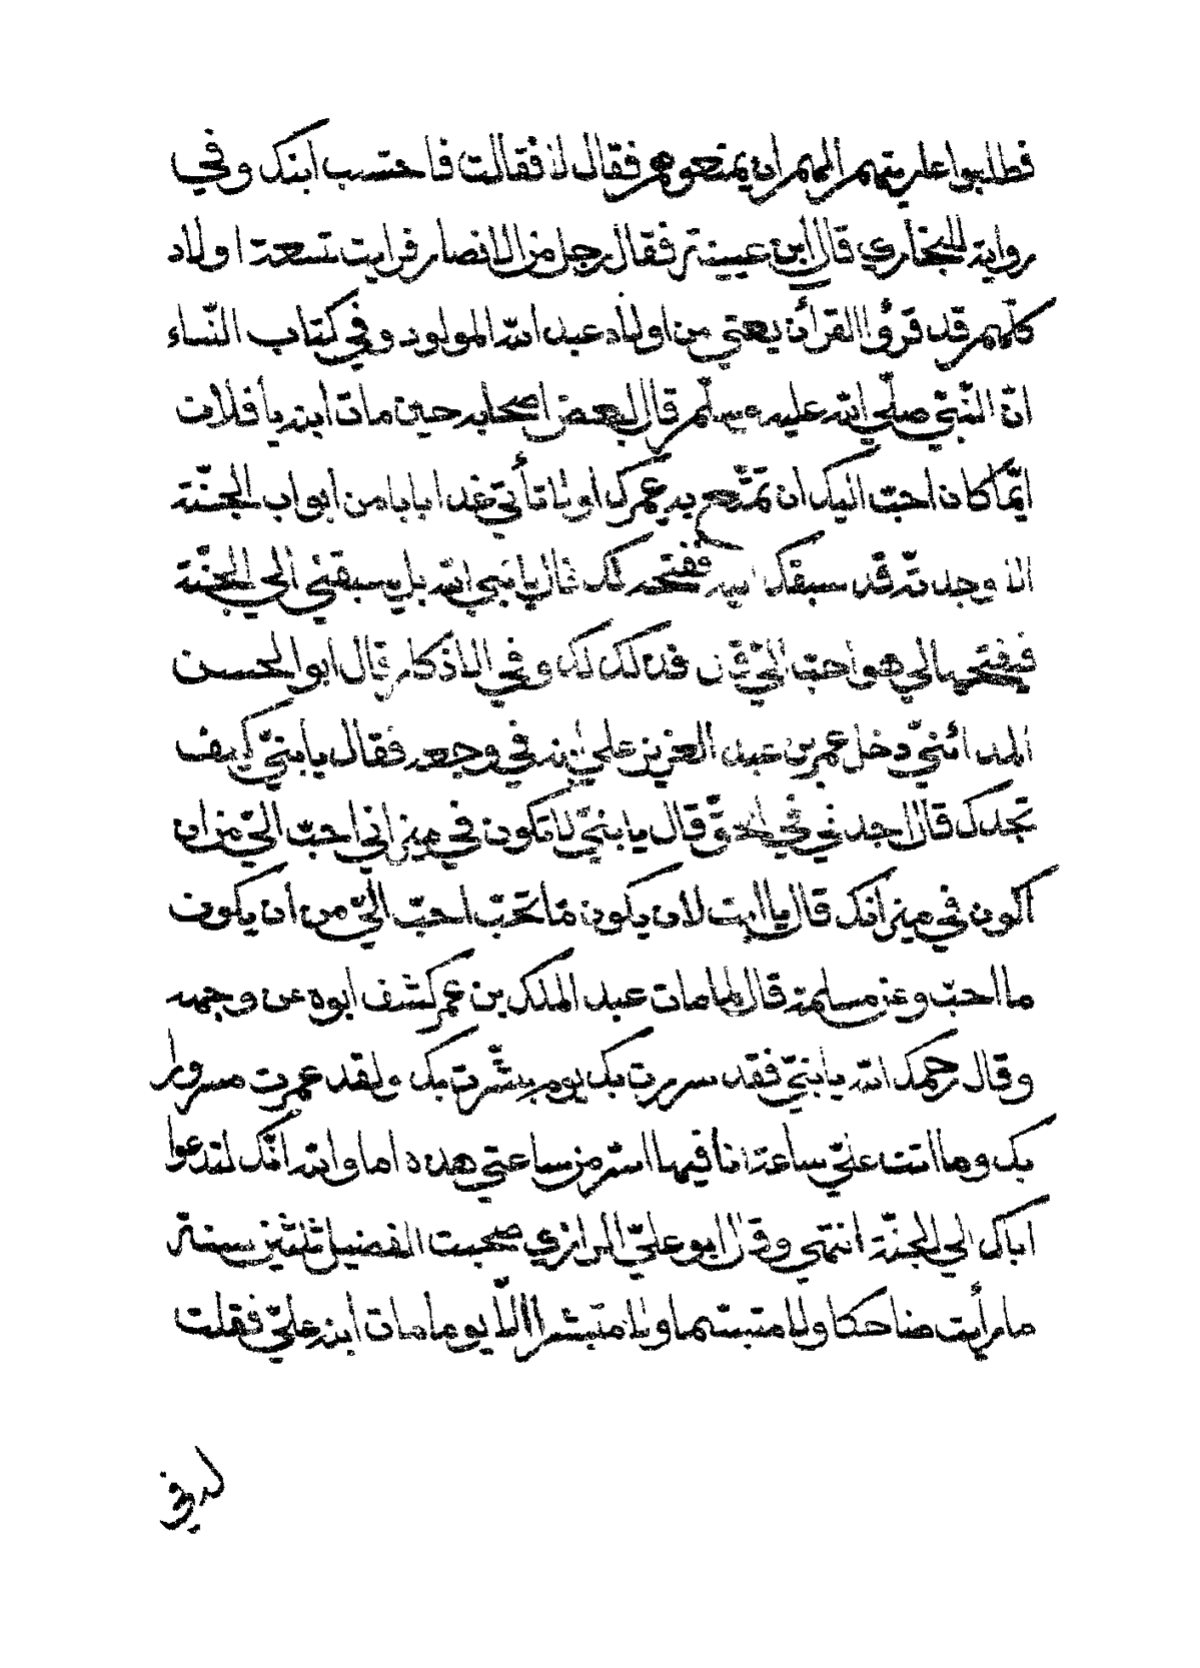 فطلبوا عاريتهم الهم ان يمنعوهم فقال لا فقالت فاحتسب ابنك وفي
رواية للبخاري قال ابن عيينة فقال رجل من الانصار فرايت تسعة اولاد
كلّهم قد قرؤا القرأن يعني من اولاد عبد الله المولود وفي كتاب النّساء
انّ النّبيّ صلّي الله عليه وسلّم قال لبعض اصحابه حين مات ابنه يا فلان
ايّما كان احبّ اليك ان تمتّع به عمرك او لا تأتي غدا بابا من ابواب الجنّة
الا وجدته قد سبقك اليه ففتحه لك قال يا نبي الله بل يسبقني الي الجنّة
فيفتحها لي هو احبّ اليّ قال فذلك لك وفي الاذكار قال ابو الحسن
المدائنيّ دخل عمر بن عبد العزيز علي ابنه في وجعه فقال يا بنيّ كيف
تجدك قال اجدني في الحقّ قال يا بنيّ لا تكون في ميزاني احبّ اليّ من ان
اكون في ميزانك قال يا ابت لان يكون ما تحبّ احبّ اليّ من أن يكون
ما احبّ وعن مسلمة قال لما مات عبد الملك بن عمر كشف ابوه عن وجهه
وقال رحمك الله يا بنيّ فقد سررت بك يوم بشّرت بك ولقد عمرت مسرورا
بك وما اتت عليّ ساعة انا فيها اسرّ من ساعتي هذه اما والله انّك لتدعوا
اباك الي الجنّة انتهي وقال ابو عليّ الرازي صحبت الفضيل ثلثين سنة
ما رأيت ضاحكا ولا متبسّما ولا متبشرا الّا يوما مات أبنه عليّ فقلت
له في